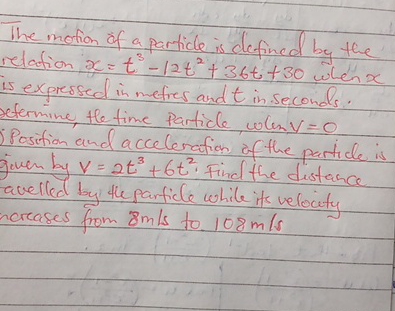 The motion of a particle is defined by the
relation x = t³ - 12t² + 36t + 30 when x
is expressed in metres and t in seconds.
Determine, the time Particle, when V = 0
) Position and acceleration of the particle is
given by V = 2t³ + 6t². Find the distance
travelled by the particle while its velocity
ncreases from 8m/s to 108m/s